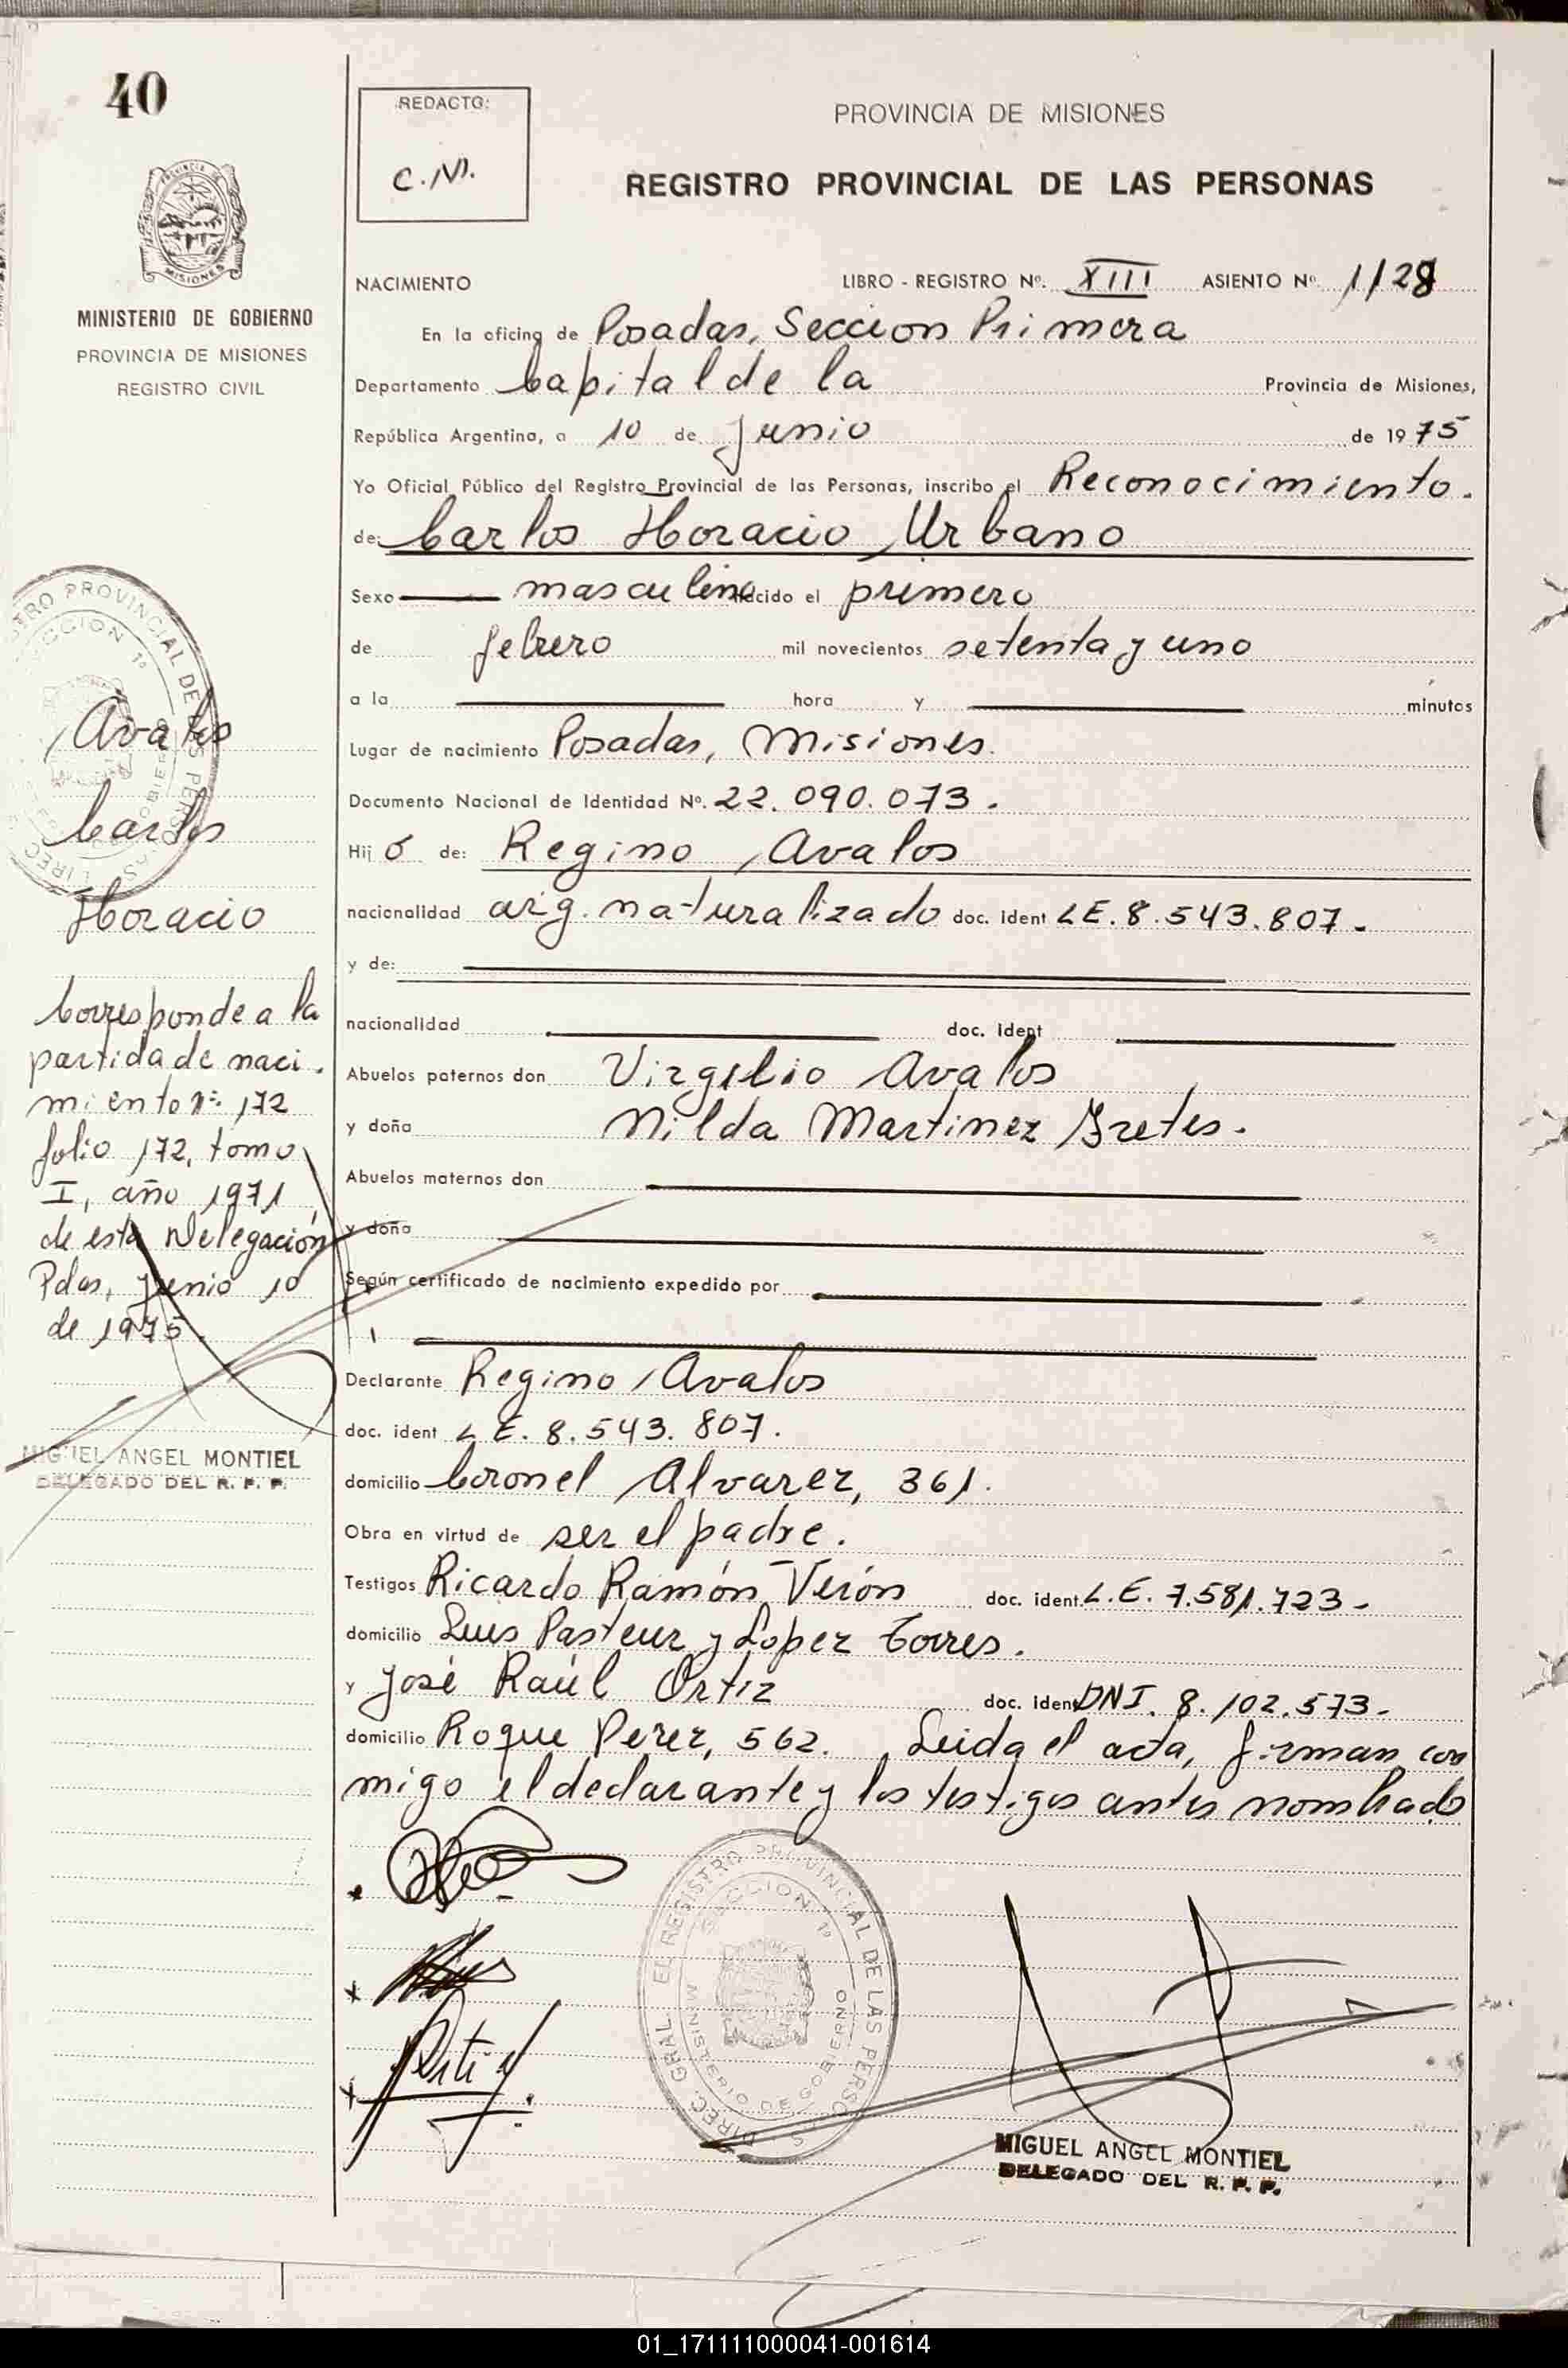 40
REDACTO:
C.M.
PROVINCIA DE MISIONES
REGISTRO PROVINCIAL DE LAS PERSONAS
PROVINCIA DE
MISIONES
MINISTERIO DE GOBIERNO
PROVINCIA DE MISIONES
REGISTRO CIVIL
NACIMIENTO LIBRO - REGISTRO Nº. XIII ASIENTO Nº. 1128
En la oficina de Posadas, Seccion Primera
Departamento Capital de la Provincia de Misiones,
República Argentina, a 10 de junio de 1975
Yo Oficial Público del Registro Provincial de las Personas, inscribo el Reconocimiento.
de: Carlos Horacio Urbano
Sexo masculino nacido el primero
de febrero mil novecientos setenta y uno
a la hora y minutos
Lugar de nacimiento Posadas, Misiones.
Documento Nacional de Identidad Nº. 22.090.073.
Hij o de: Regino Avalos
nacionalidad arg. naturalizado doc. ident LE. 8.543.807.-
y de:
nacionalidad doc. ident
Abuelos paternos don Virgilio Avalos
y doña Nilda Martinez Gretes.
Abuelos maternos don
y doña
Según certificado de nacimiento expedido por
Declarante Regino Avalos
doc. ident L E. 8.543.807.
domicilio Coronel Alvarez, 361.
Obra en virtud de ser el padre.
Testigos Ricardo Ramón Verón doc. ident. L.E. 7.581.723-
domicilio Luis Pasteur y Lopez Torres.
y José Raúl Ortiz doc. ident DNI. 8.102.573-
domicilio Roque Perez, 562. Leida el acta, firman con
migo el declarante y los testigos antes nombrado
Avalos
Carlos
Horacio
Corresponde a la
partida de naci.
miento nº: 172
folio 172, tomo
I, año 1971
de esta Delegación
Pdas, junio 10
de 1975.
MIGUEL ANGEL MONTIEL
DELEGADO DEL R. P. P.
DIREC. GRAL. EL REGISTRO PROVINCIAL DE LAS PERSONAS
SECCION 1º
MINISTERIO DE GOBIERNO
MIGUEL ANGEL MONTIEL
DELEGADO DEL R. P. P.
01_171111000041-001614